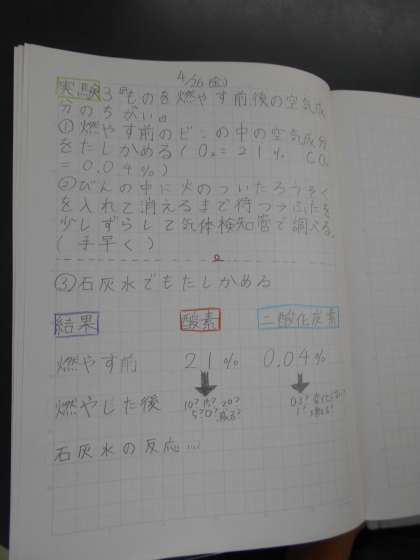 4/26(金)
実験3 ものを燃やす前、後の空気成
分のちがい。
①燃やす前のビンの中の空気成分
をたしかめる(O₂=21% CO₂
=0.04%)
②びんの中に火のついたろうそく
を入れて消えるまで待つ→ふたを
少しずらして気体検知管で調べる。
(手早く)
③石灰水でもたしかめる
結果 酸素 二酸化炭素
燃やす前 21% 0.04%
燃やした後 10? 15? 20? 0.3?
5? 0? 減る? 1?
石灰水の反応…